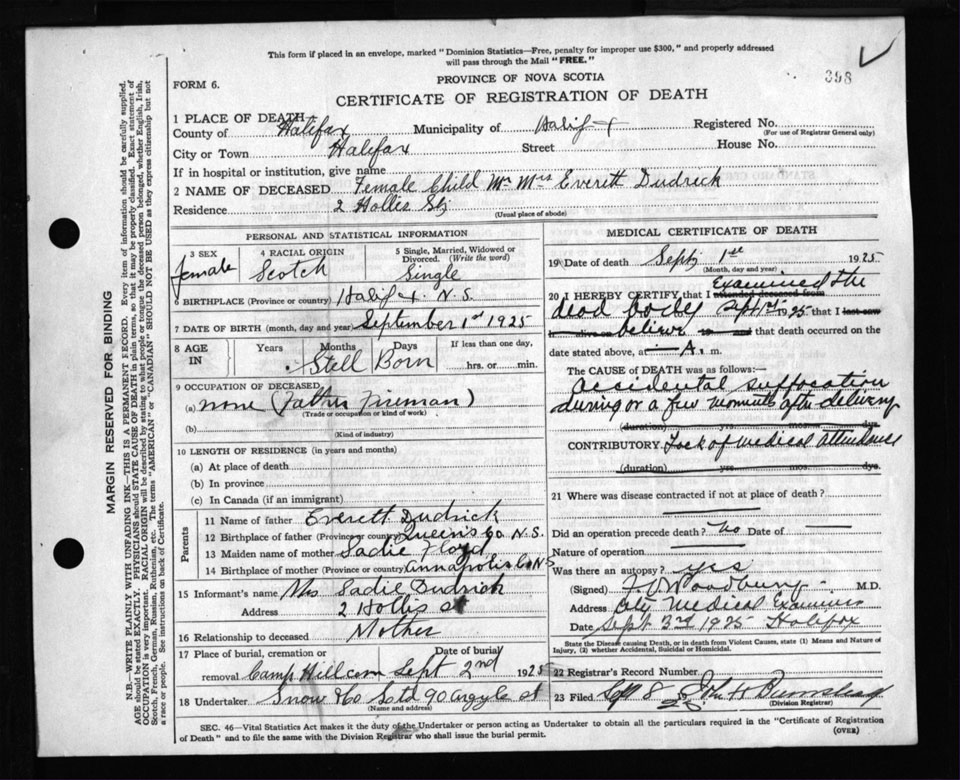 This form if placed in an envelope, marked "Dominion Statistics—Free, penalty for improper use $300," and properly addressed
will pass through the Mail "FREE."
398
PROVINCE OF NOVA SCOTIA
FORM 6.
CERTIFICATE OF REGISTRATION OF DEATH
1 PLACE OF DEATH
County of Halifax Municipality of Halifax Registered No.
(For use of Registrar General only)
City or Town Halifax Street House No.
If in hospital or institution, give name
2 NAME OF DECEASED Female Child Mr Mrs Everett Dudrick
Residence 2 Hollis St
(Usual place of abode)
PERSONAL AND STATISTICAL INFORMATION
3 SEX 4 RACIAL ORIGIN 5 Single, Married, Widowed or
Divorced. (Write the word)
female Scotch Single
6 BIRTHPLACE (Province or country) Halifax. N.S.
7 DATE OF BIRTH (month, day and year) September 1st 1925
8 AGE IN Years Months Days If less than one day,
Stell Born hrs. or min.
9 OCCUPATION OF DECEASED
(a) none (Father Fireman)
(Trade or occupation or kind of work)
(b)
(Kind of industry)
10 LENGTH OF RESIDENCE (in years and months)
(a) At place of death
(b) In province
(c) In Canada (if an immigrant)
Parents
11 Name of father Everett Dudrick
12 Birthplace of father (Province or country) Queens Co. N.S.
13 Maiden name of mother Sadie Floyd
14 Birthplace of mother (Province or country) Annapolis Co NS
15 Informant's name Mrs Sadie Dudrick
Address 2 Hollis st
16 Relationship to deceased Mother
17 Place of burial, cremation or Date of burial
removal Camp Hill cem Sept 2nd 1925
18 Undertaker Snow & Co Ltd 90 Argyle st
(Name and address)
MEDICAL CERTIFICATE OF DEATH
19 Date of death Sept 1st 1925
(Month, day and year)
20 I HEREBY CERTIFY that I attended deceased from Examined the
dead body Sept 1st 1925 that I last saw
alive on believe and that death occurred on the
date stated above, at A. m.
The CAUSE of DEATH was as follows:—
Accidental suffocation
during or a few moments after delivery
(duration) yrs. mos. dys.
CONTRIBUTORY Lack of medical attendance
(duration) yrs. mos. dys.
21 Where was disease contracted if not at place of death?
Did an operation precede death? No Date of
Nature of operation
Was there an autopsy? yes
(Signed) Woodbury M.D.
Address City Medical Examiner
Date Sept 3rd 1925 Halifax
State the Disease causing Death, or in death from Violent Causes, state (1) Means and Nature of
Injury, (2) whether Accidental, Suicidal or Homicidal.
22 Registrar's Record Number
23 Filed 8 25 John H
(Division Registrar)
SEC. 46—Vital Statistics Act makes it the duty of the Undertaker or person acting as Undertaker to obtain all the particulars required in the "Certificate of Registration
of Death" and to file the same with the Division Registrar who shall issue the burial permit.
(OVER)
MARGIN RESERVED FOR BINDING
N.B.—WRITE PLAINLY WITH UNFADING INK—THIS IS A PERMANENT RECORD. Every item of information should be carefully supplied.
AGE should be stated EXACTLY. PHYSICIANS should STATE CAUSE OF DEATH in plain terms, so that it may be properly classified. Exact statement of
OCCUPATION is very important. RACIAL ORIGIN will be described by stating to what people or tongue the deceased person belonged, whether English, Irish,
Scotch, French, German, Russian, Ruthenian, etc. The terms "AMERICAN" or "CANADIAN" SHOULD NOT BE USED as they express citizenship but not
a race or people. See instructions on back of Certificate.